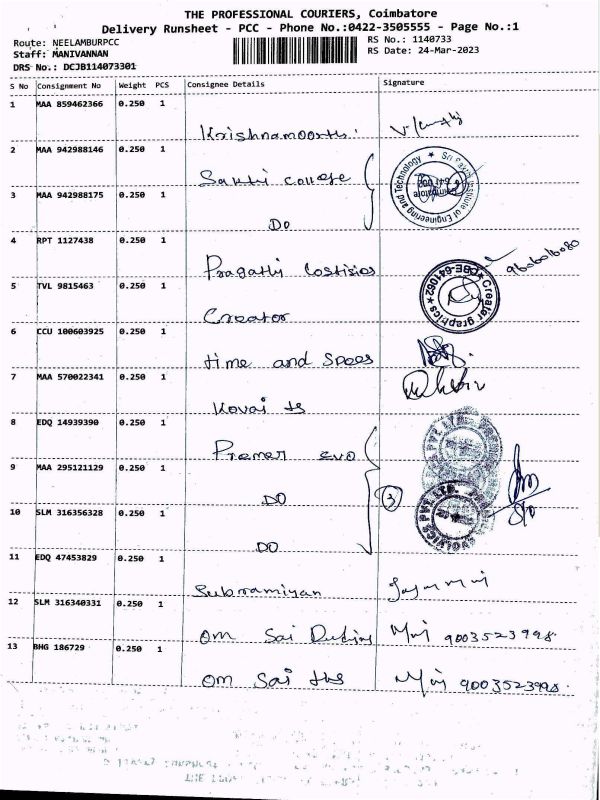 THE PROFESSIONAL COURIERS, Coimbatore
Delivery Runsheet - PCC - Phone No.:0422-3505555 - Page No.:1
Route: NEELAMBURPCC
RS No.: 1140733
Staff: MANIVANNAN
RS Date: 24-Mar-2023
DRS No.: DCJB114073301
S No Consignment No Weight PCS Consignee Details Signature
1 MAA 859462366 0.250 1
Krishnamoorthi
2 MAA 942988146 0.250 1
Sakthi College
Sri Sakthi Institute of Engineering and Technology
3 MAA 942988175 0.250 1
DO
4 RPT 1127438 0.250 1
Pragathi
9606016080
5 TVL 9815463 0.250 1
Creator
Creater graphics CBE-641062
6 CCU 100603925 0.250 1
time and
7 MAA 570022341 0.250 1
Kovai ts
8 EDQ 14939390 0.250 1
Premer evo
9 MAA 295121129 0.250 1
DO
3
10 SLM 316356328 0.250 1
DO
PVT. LTD.
11 EDQ 47453829 0.250 1
Subramiyan
12 SLM 316340331 0.250 1
Om Sai
9003523998
13 BHG 186729 0.250 1
Om Sai
9003523998